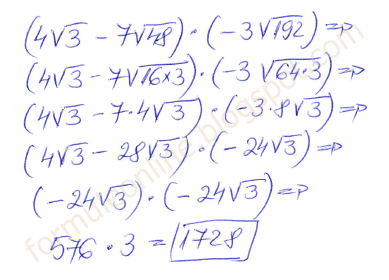 (4√3 - 7√48) · (-3√192) ⇒
(4√3 - 7√16×3) · (-3 √64·3) ⇒
(4√3 - 7·4√3) · (-3·8√3) ⇒
(4√3 - 28√3) · (-24√3) ⇒
(-24√3) · (-24√3) ⇒
576 · 3 = 1728
formulaonline.blogspot.com